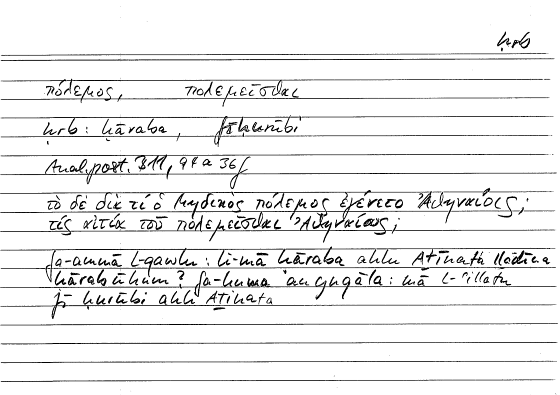 ḥrb
πόλεμος, πολεμεῖσθαι
ḥrb: ḥāraba, fī ḥurūbi
Anal. post. B 11, 94 a 36 f
τὸ δὲ διὰ τί ὁ Μηδικὸς πόλεμος ἐγένετο Ἀθηναίοις;
τίς αἰτία τοῦ πολεμεῖσθαι Ἀθηναίους;
fa-ammā l-qawlu: li-mā ḥāraba ahlu Aṯīnata lladīna
ḥārabūhum? fa-huwa an yuqāla: mā l-ʿillatu
fī ḥurūbi ahli Aṯīnata